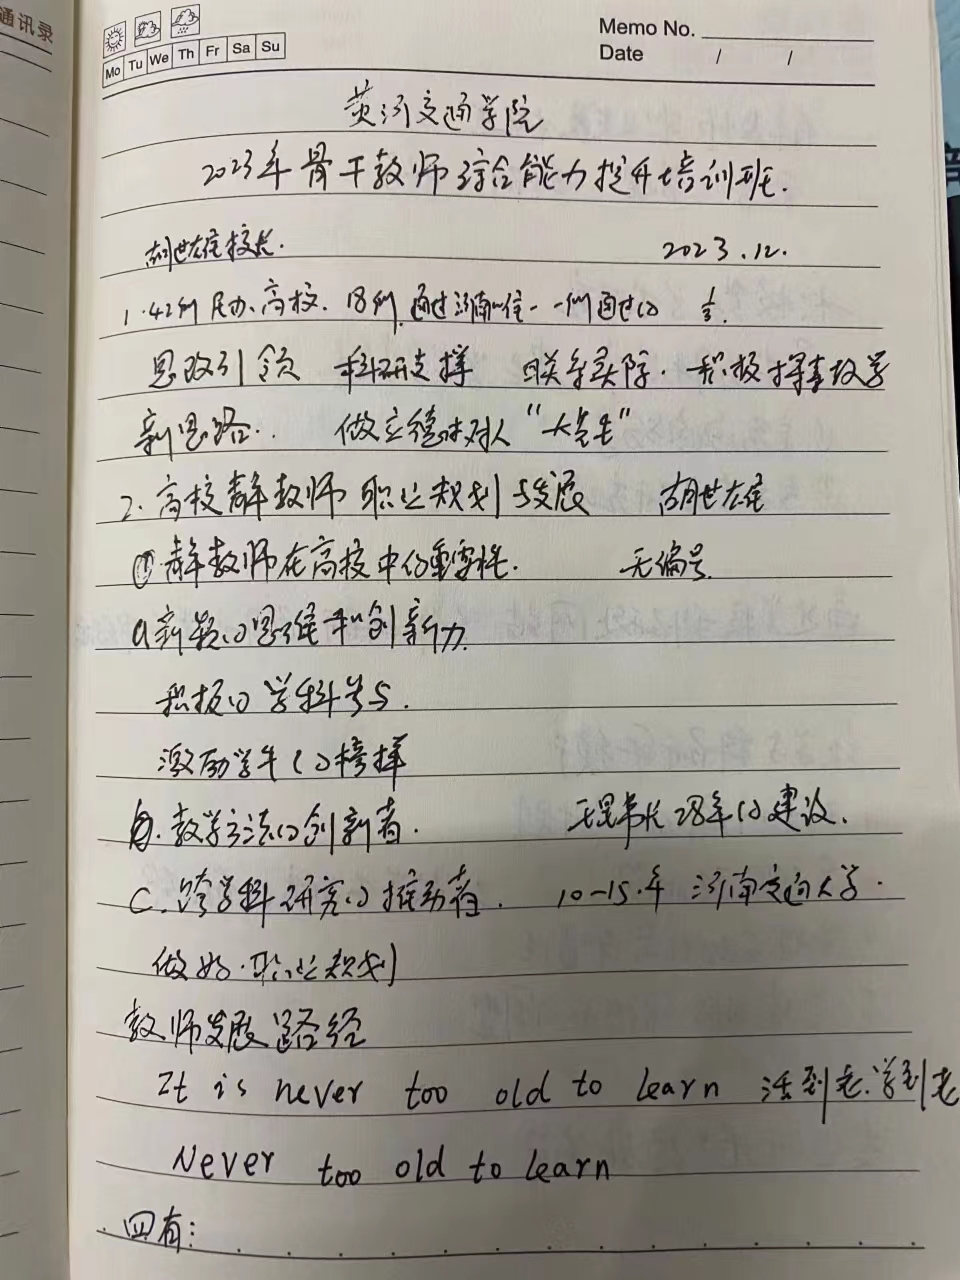 通讯录
Memo No.
Mo Tu We Th Fr Sa Su
Date / /
黄河交通学院
2023年骨干教师综合能力提升培训班.
胡世雄校长. 2023.12.
1.42所民办高校. 18所 通过 一所通过的
思政引领 科研支撑 联系实际. 积极探索教学
新思路.. 做立德树人“大先生”
2.高校青年教师职业规划与发展 胡世雄
①青年教师在高校中的重要性. 无编号.
a新颖的思维和创新力.
积极的学科参与.
激励学生的榜样
b.教学方法的创新者. 28年的建设.
C.跨学科研究的推动者. 10-15.年 河南交通大学.
做好.职业规划
教师发展路径
It is never too old to learn 活到老.学到老
Never too old to learn
四有: